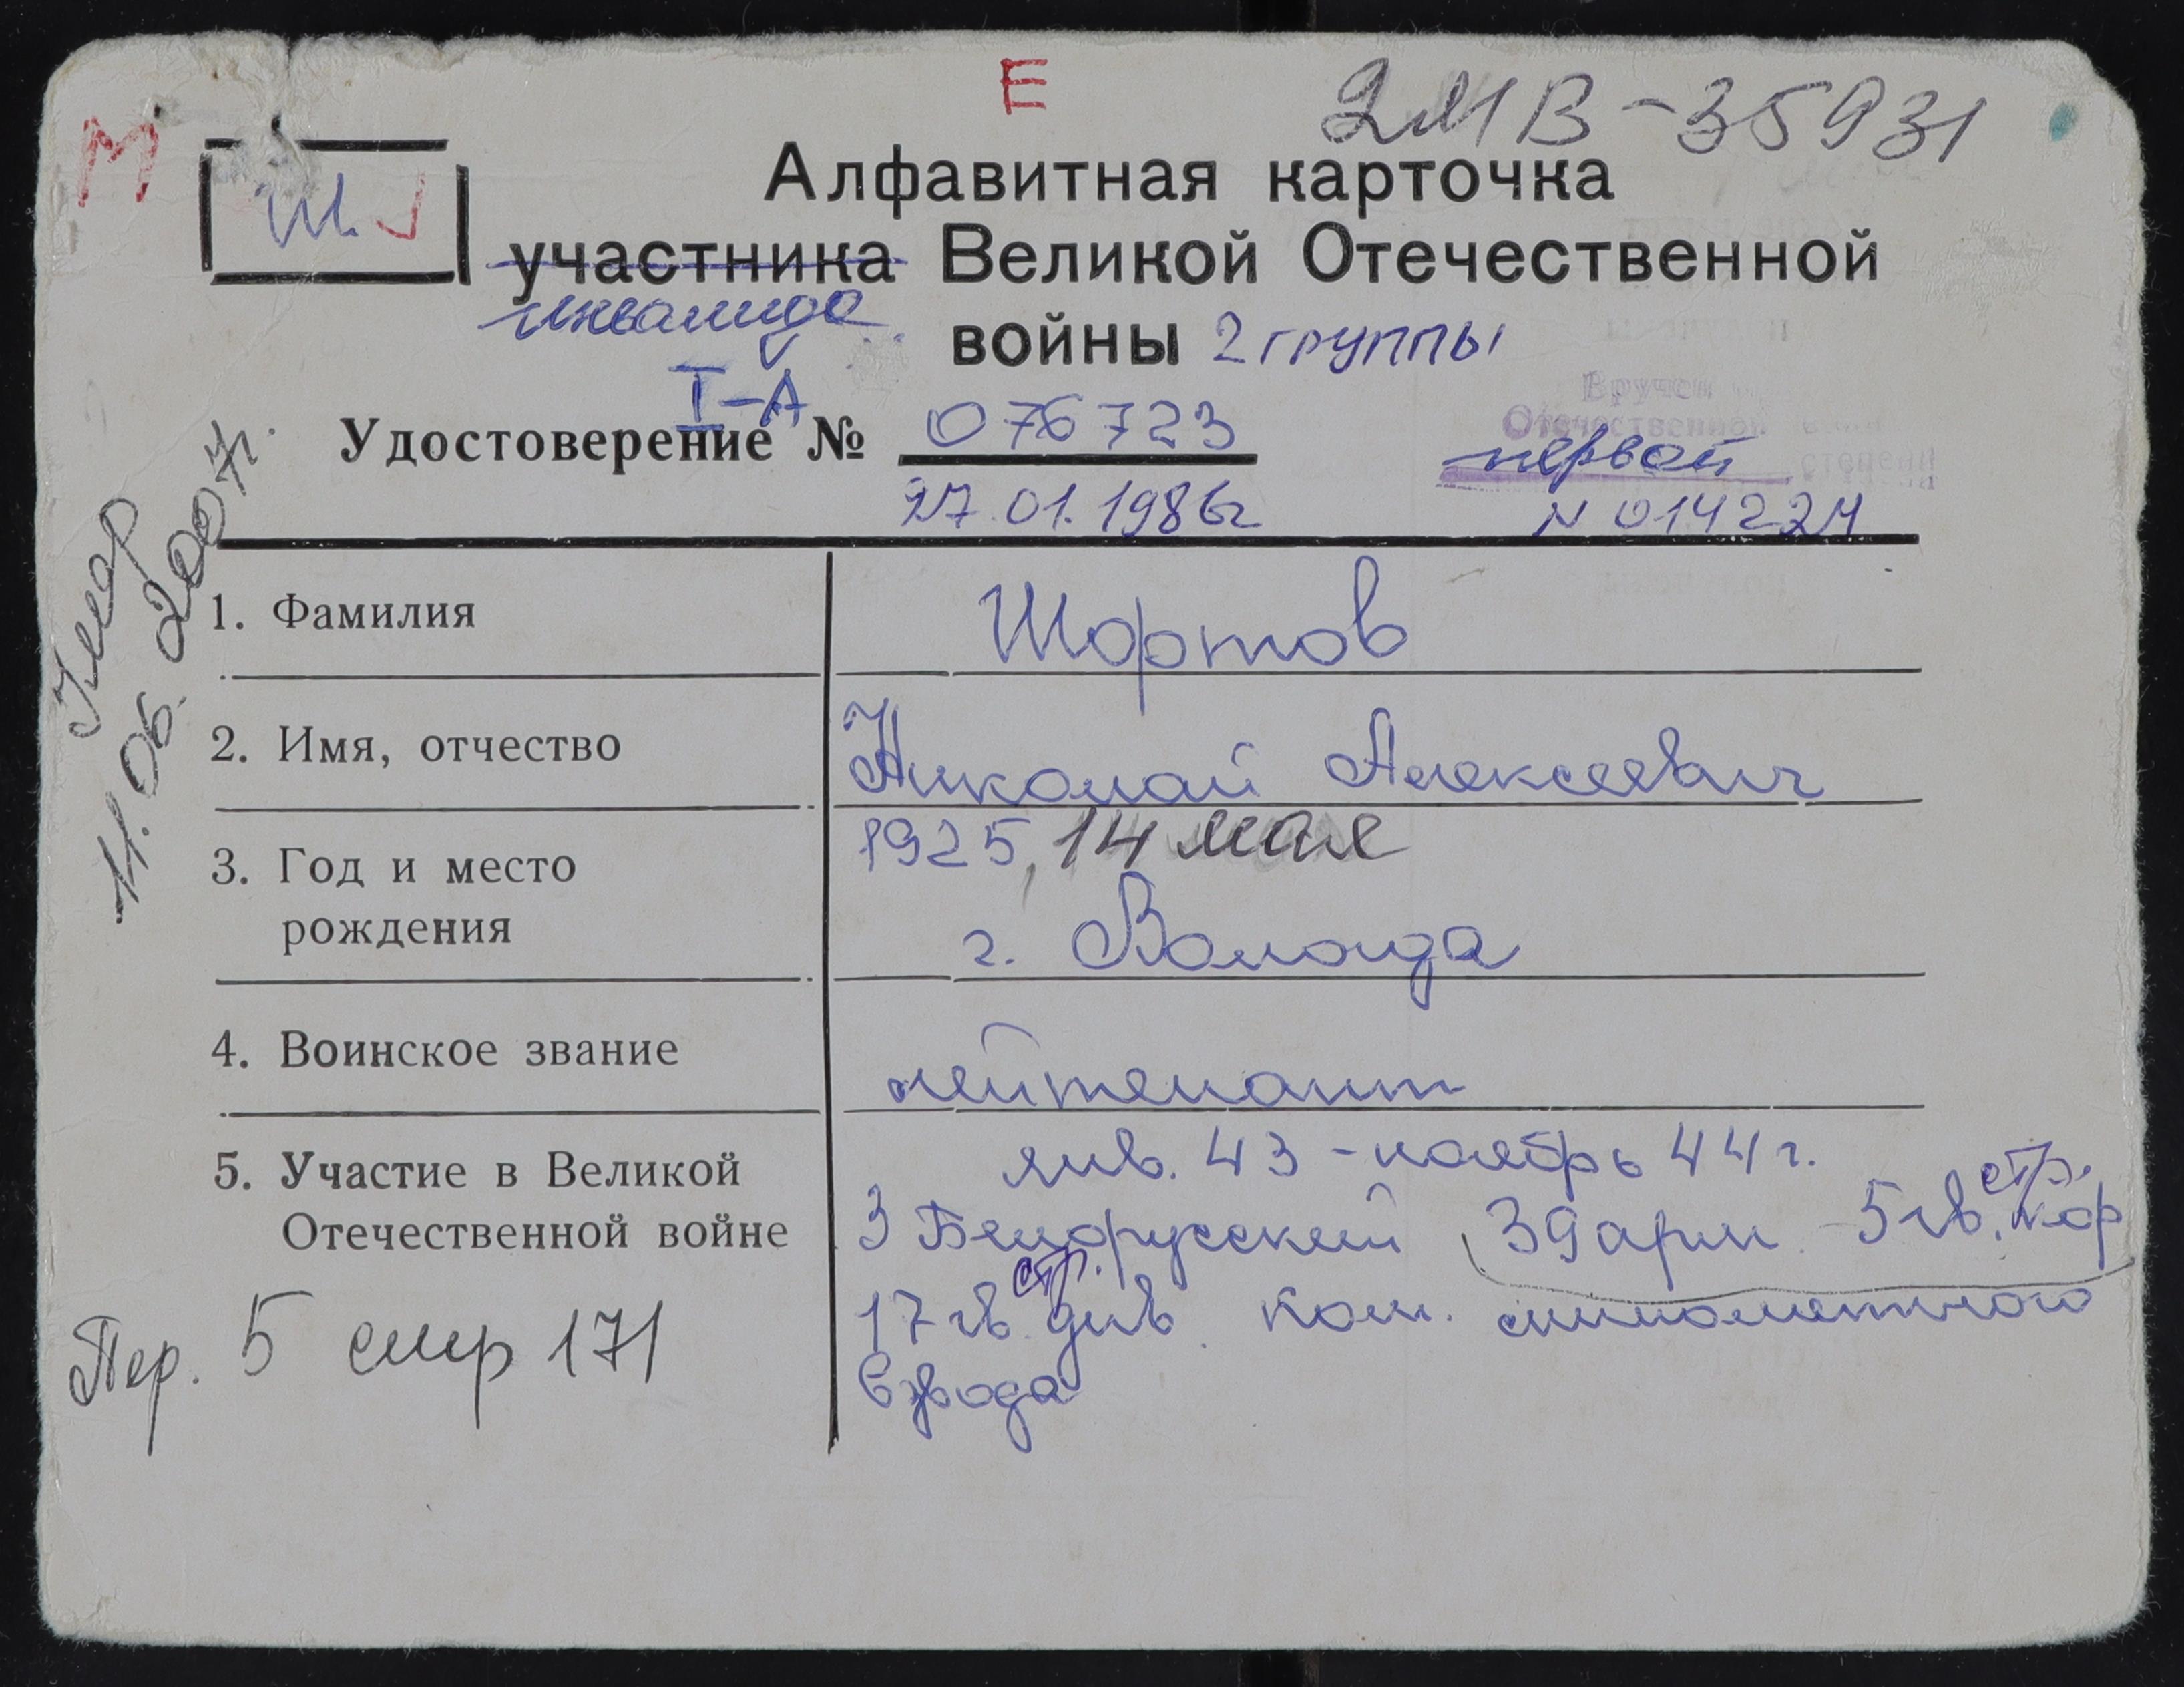 Е
2МВ-35931
М
Ш.
Алфавитная карточка
участника Великой Отечественной
инвалида
войны 2 группы
I-А
Удостоверение № 076723
27.01.1986г
Вручен
Отечественной
первой степени
N 0142224
Умер
11.06.2007г.
1. Фамилия Шортов
2. Имя, отчество Николай Алексеевич
3. Год и место 1925, 14 мая
рождения г. Вологда
4. Воинское звание лейтенант
5. Участие в Великой янв. 43 - ноябрь 44 г.
стр.
Отечественной войне 3 Белорусский 39 арм. 5 гв. кор
стр.
17 гв. див. ком. минометного
Пер. 5 стр 171
взвода